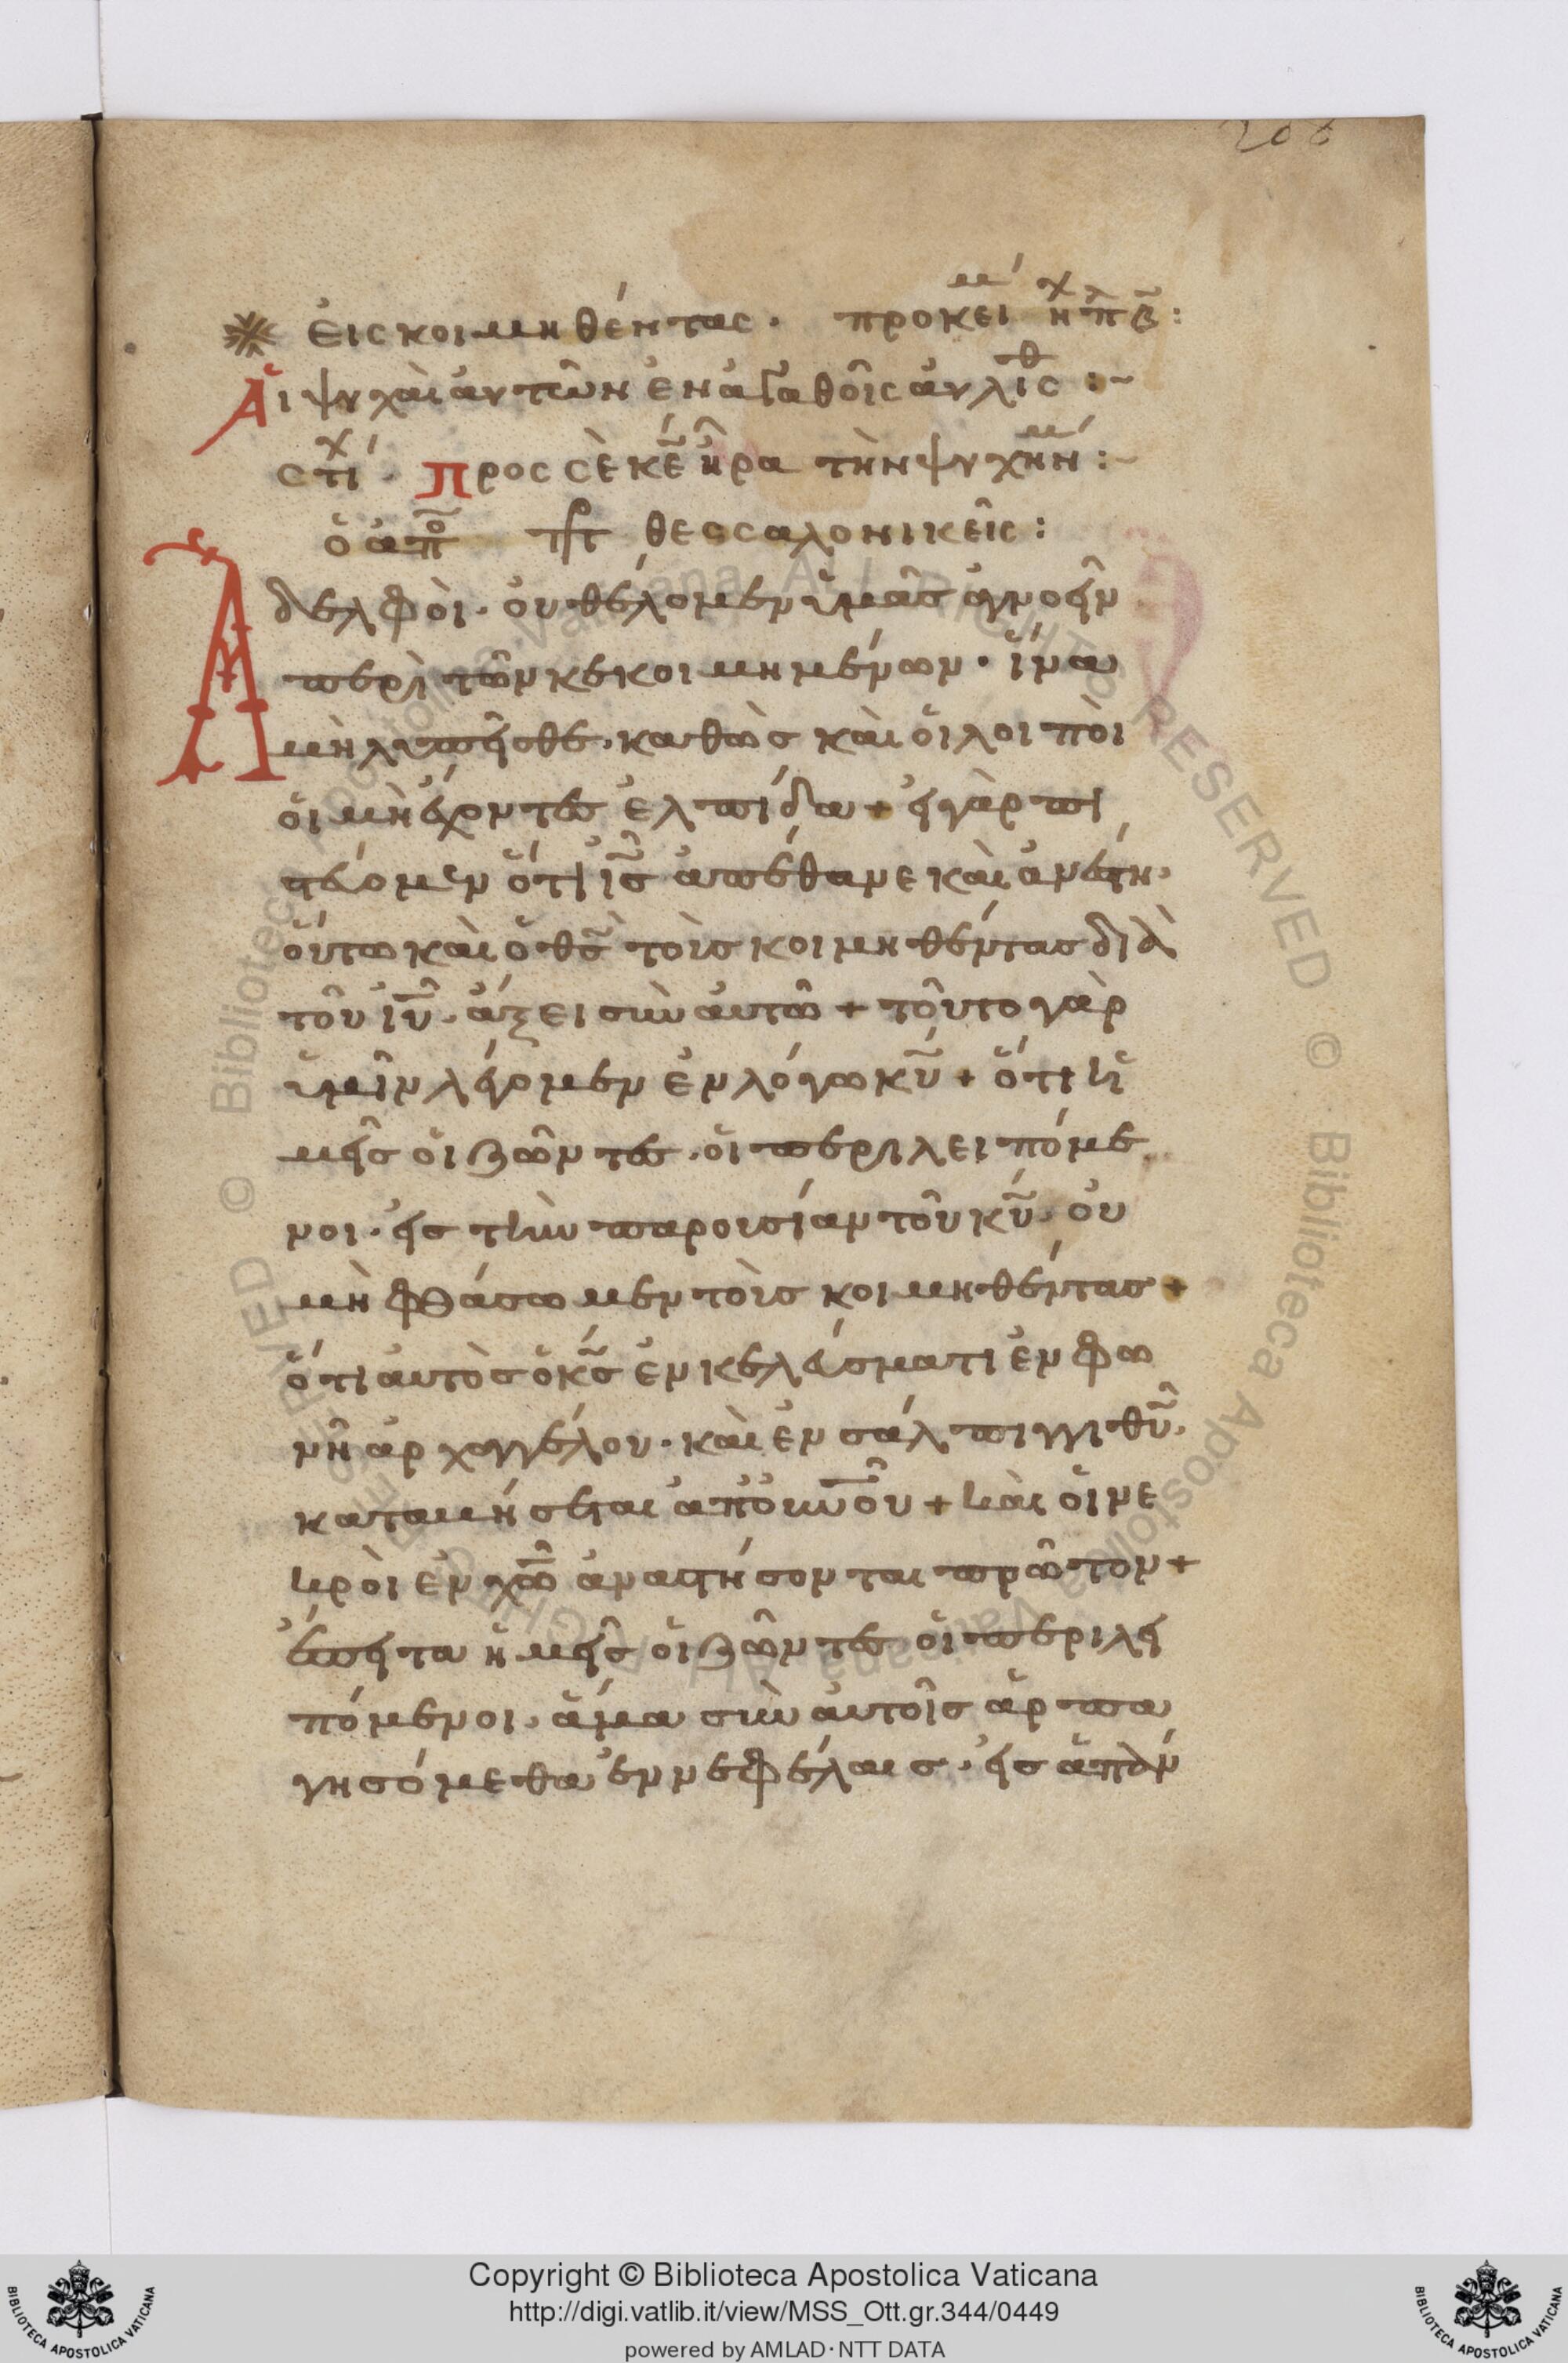 208
εἰς κοιμηθέντας · προκεί ἠχ πλ β :
Αἱ ψυχαὶ αὐτῶν ἐν ἀγαθοῖς αὐλισθ :~
στίχ · Προς σὲ κ̅ε̅ ἦρα τὴν ψυχήν μ :~
ὁ ἀπο πρ θεσσαλονικεῖς :
Ἀδελφοὶ · οὐ θέλομεν ὑμᾶς ἀγνοεῖν
περὶ τῶν κεκοιμημένων · ἵνα
μὴ λυπεῖσθε · καθὼς καὶ οἱ λοιποὶ
οἱ μὴ ἔχοντες ἐλπίδα + εἰ γὰρ πι
στεύομεν ὅτι ι̅ς̅ ἀπέθανε καὶ ἀνέστη ·
οὕτω καὶ ὁ θ̅ς̅ τοὺς κοιμηθέντας διὰ
τοῦ ι̅υ̅ · ἄξει σὺν αὐτῶ + τοῦτο γὰρ
ὑμῖν λέγομεν ἐν λόγω κ̅υ̅ + ὅτι ἡ
μεῖς οἱ ζῶντες · οἱ περιλειπόμε
νοι · εἰς τὴν παρουσίαν τοῦ κ̅υ̅ · οὐ
μὴ φθάσωμεν τοὺς κοιμηθέντας +
ὅτι αὐτὸς ὁ κ̅ς̅ ἐν κελεύσματι ἐν φω
νῆ ἀρχαγγέλου · καὶ ἐν σάλπιγγι θ̅υ̅ ·
καταβήσεται ἀπὸ ο̅υ̅ν̅ο̅υ̅ + καὶ οἱ νε
κροὶ ἐν χ̅ω̅ ἀναστήσονται πρῶτον +
ἔπειτα ἡμεῖς οἱ ζῶντες οἱ περιλει
πόμενοι · ἅμα σὺν αὐτοῖς ἁρπα
γησόμεθα ἐν νεφέλαις · εἰς ἀπάν
Copyright © Biblioteca Apostolica Vaticana
http://digi.vatlib.it/view/MSS_Ott.gr.344/0449
powered by AMLAD · NTT DATA